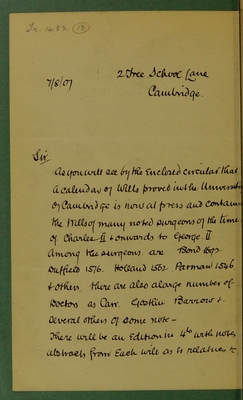 2 Free School Lane
Cambridge.
7/8/07
Sir
As you will see by the Enclosed circular that
a calendar of Wills proved in the University
of Cambridge is now at press and contains
the Wills of many noted surgeons of the time
of Charles II & onwards to George II
Among the surgeons are Bond
Duffield 1576. Holland 1562. Perman 1546
& others. there are also a large number of
Doctors as Carr. Gostlin Barrow &
several others of some note -
There will be an Edition in 4to with notes
abstracts from Each will as to relatives &